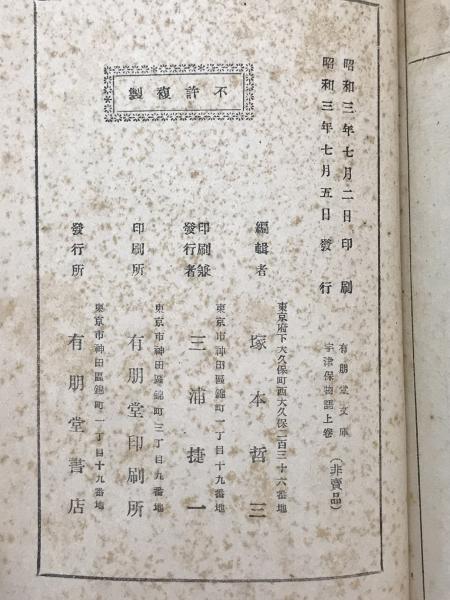 昭和三年七月二日印刷
昭和三年七月五日發行
有朋堂文庫
宇津保物語上卷
(非賣品)
不許複製
東京府下大久保町西大久保二百三十六番地
編輯者 塚本哲三
東京市神田區錦町一丁目十九番地
印刷兼
發行者 三浦捷一
東京市神田區錦町三丁目九番地
印刷所 有朋堂印刷所
東京市神田區錦町一丁目十九番地
發行所 有朋堂書店